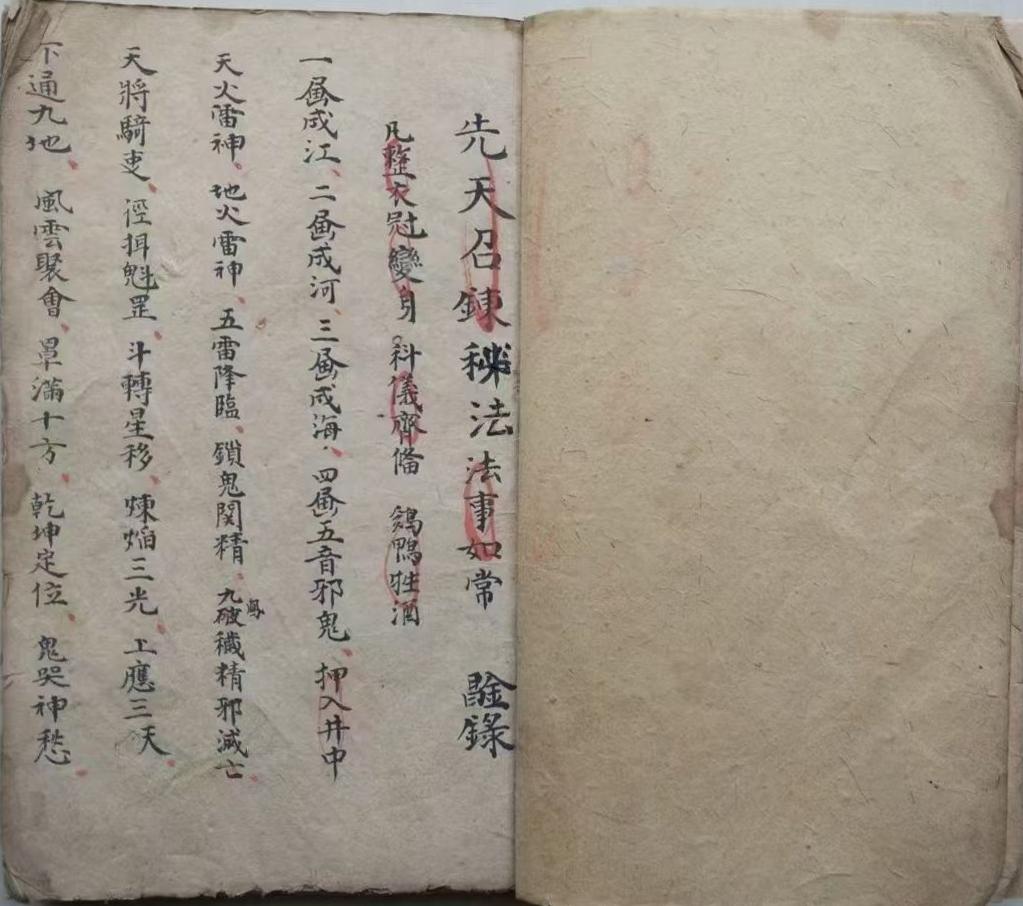 先天召鍊秘法法事如常 錄
凡整衣冠變身 科儀齊偹 鷄鴨牲酒
一画成江、二画成河、三画成海、四画五音邪鬼、押入井中
天火雷神、地火雷神、五雷降臨、鎖鬼関精、九破穢精邪滅亡、
天將騎吏、徑揖魁罡、斗轉星移、煉焰三光、上應三天、
下通九地、風雲聚會、罩滿十方、乾坤定位、鬼哭神愁、